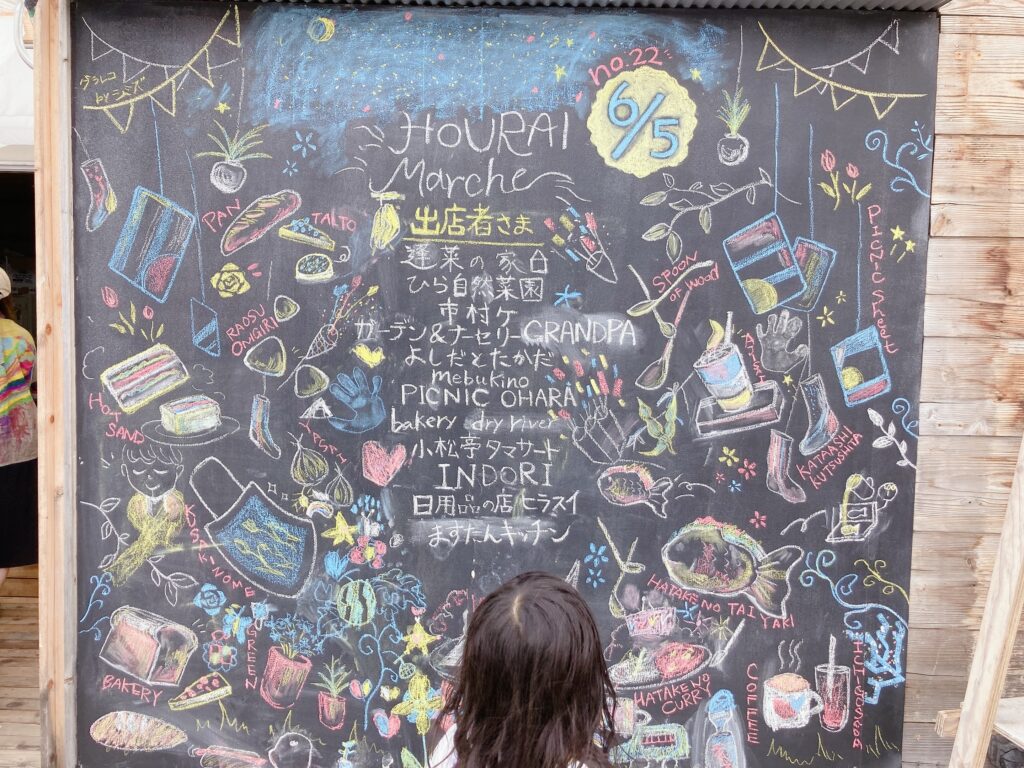 no.22
6/5
HOURAI
Marche
出店者さま
蓬莱の家
ひら自然菜園
市村ケ
ガーデン&ナーセリーGRANDPA
よしだとたかだ
mebukino
PICNIC OHARA
bakery dry river
小松亭タマサート
INDORI
日用品の店ヒラスイ
ますたんキッチン
by シミズ
PAN
TALTO
RAOSU
ONGIRI
HOT
SAND
YASAI
KUSAKINOME
GREEN
BAKERY
SPOON
OF WOOD
PICNIC SHEET
KATAASHI
KUTSUSHITA
HATAKE NO TAI
YAKI
HATAKE NO
CURRY
COFFEE